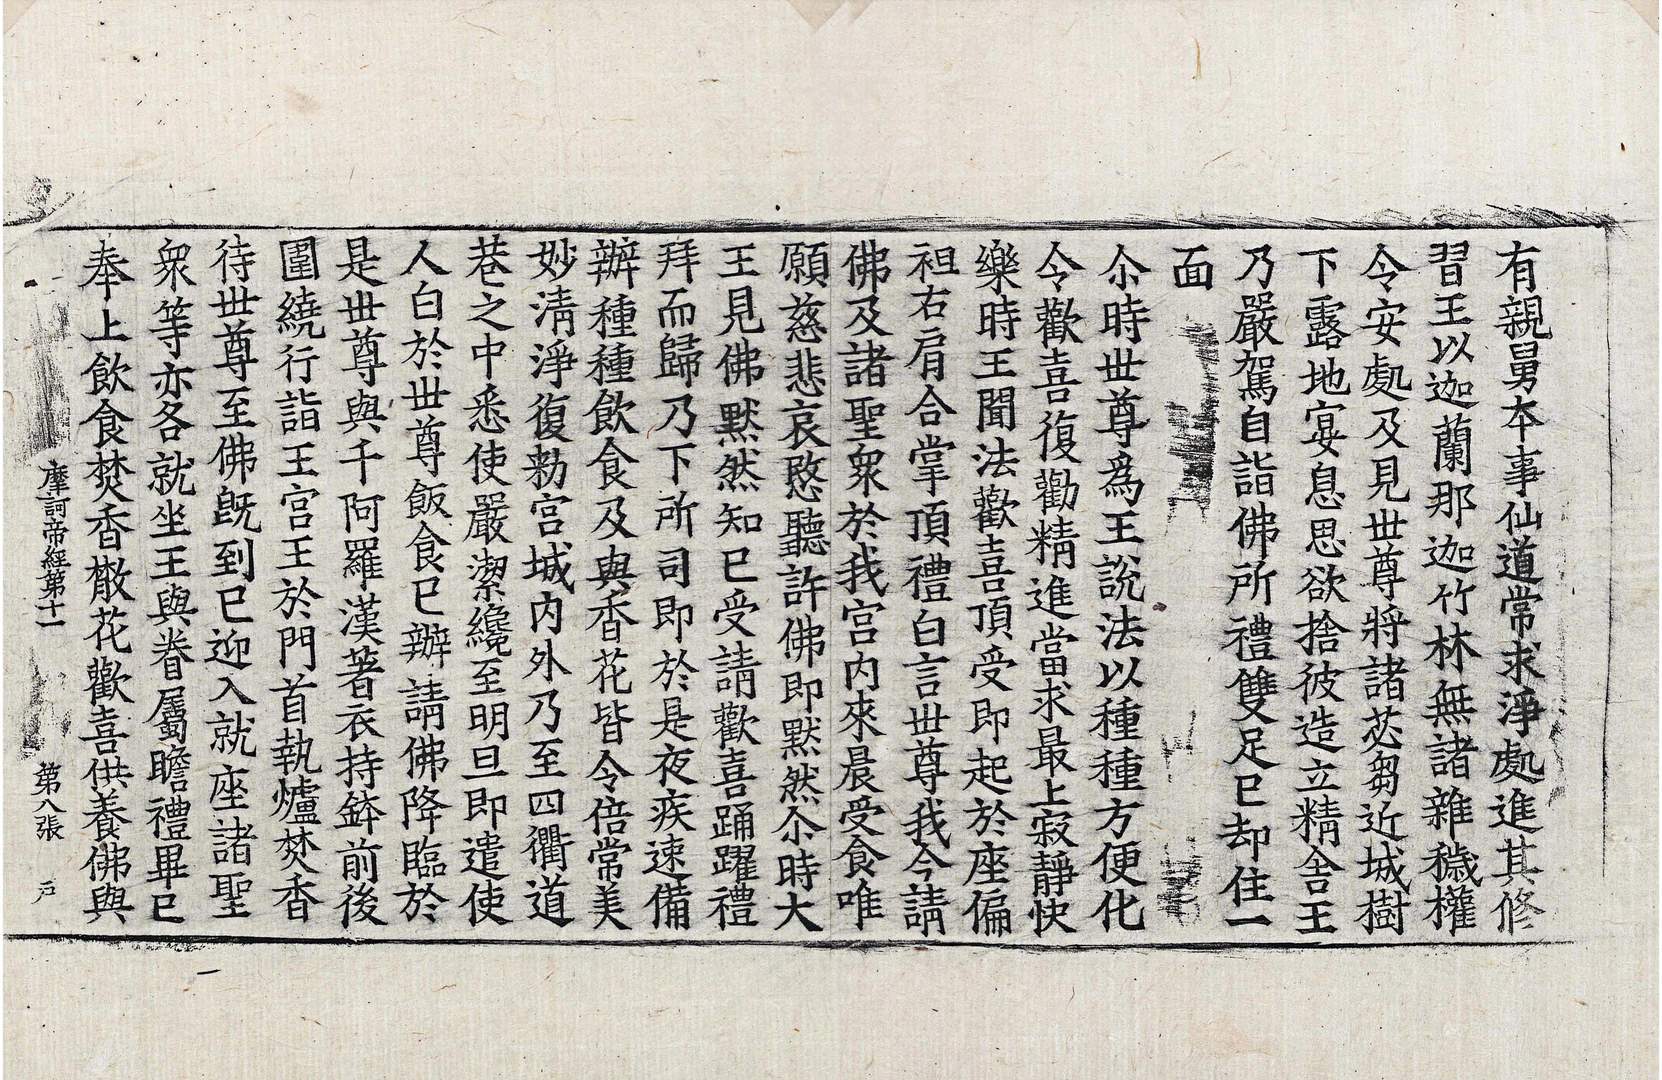 有親舅本事仙道常求淨處進其修
習王以迦蘭那迦竹林無諸雜穢權
令安處及見世尊將諸苾芻近城樹
下露地宴息思欲捨彼造立精舍王
乃嚴駕自詣佛所禮雙足已却住一
面
尒時世尊爲王說法以種種方便化
令歡喜復勸精進當求最上寂靜快
樂時王聞法歡喜頂受即起於座偏
袒右肩合掌頂禮白言世尊我今請
佛及諸聖衆於我宮內來晨受食唯
願慈悲哀愍聽許佛即默然尒時大
王見佛默然知已受請歡喜踊躍禮
拜而歸乃下所司即於是夜疾速備
辦種種飲食及與香花皆令倍常美
妙淸淨復勑宮城內外乃至四衢道
巷之中悉使嚴潔纔至明旦即遣使
人白於世尊飯食已辦請佛降臨於
是世尊與千阿羅漢著衣持鉢前後
圍繞行詣王宮王於門首執爐焚香
待世尊至佛旣到已迎入就座諸聖
衆等亦各就坐王與眷屬瞻禮畢已
奉上飲食焚香散花歡喜供養佛與
摩訶帝經第十一 第八張 戶